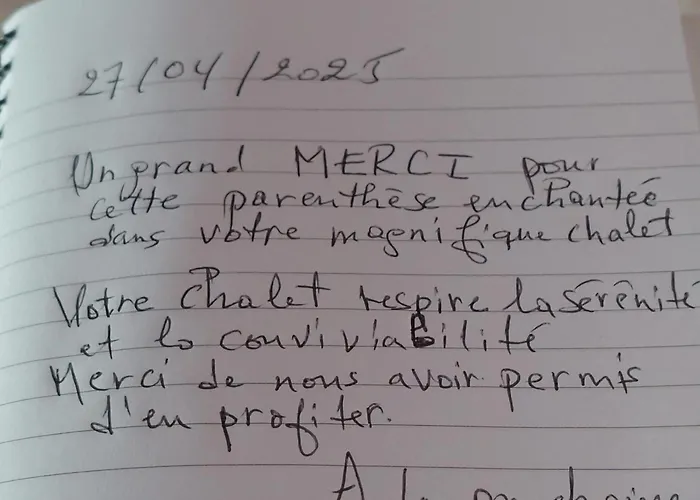 27/04/2025
Un grand MERCI pour
cette parenthèse enchantée
dans votre magnifique chalet
Votre chalet respire la sérénité
et la convivialité
Merci de nous avoir permis
d'en profiter.
A la